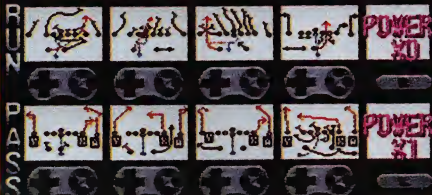 RUN
POWER
X0
PASS
POWER
X1